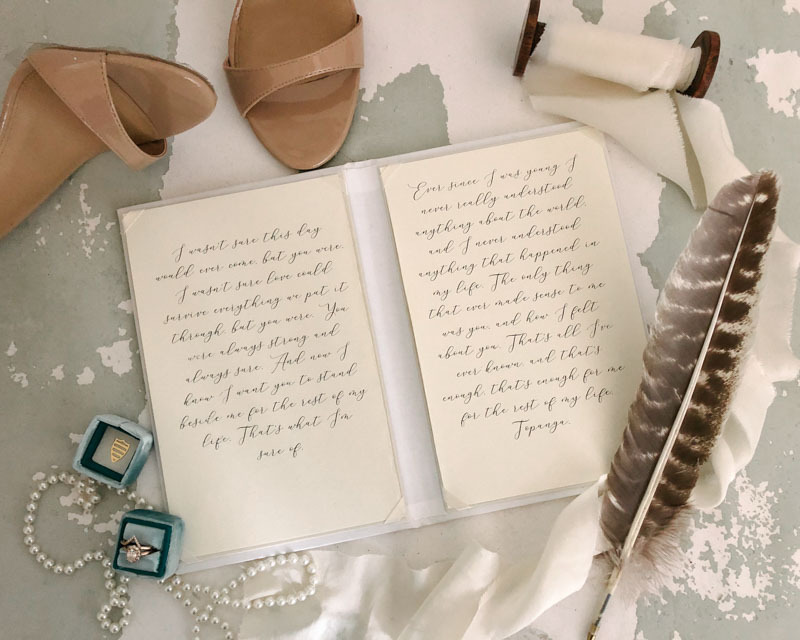 I wasn't sure this day
would ever come, but you were.
I wasn't sure love could
survive everything we put it
through, but you were. You
were always strong and
always sure. And now I
know I want you to stand
beside me for the rest of my
life. That's what I'm
sure of.
Ever since I was young I
never really understood
anything about the world,
and I never understood
anything that happened in
my life. The only thing
that ever made sense to me
was you, and how I felt
about you. That's all I've
ever known, and that's
enough, that's enough for me
for the rest of my life,
Topanga.